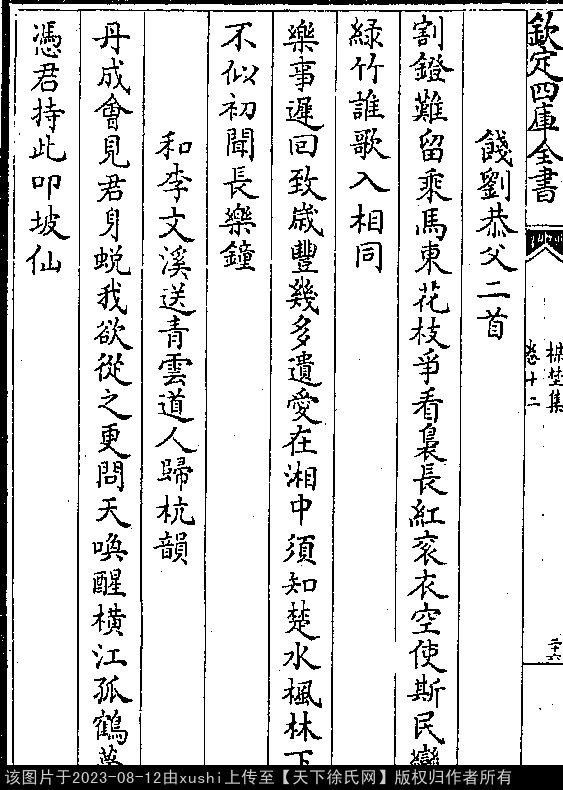 欽定四庫全書
卷十二
二十六
餞劉恭父二首
割鐙難留乘馬東花枝爭看裊長紅衮衣空使斯民戀
緑竹誰歌入相同
樂事遲回致歲豐幾多遺愛在湘中須知楚水楓林下
不似初聞長樂鐘
和李文溪送青雲道人歸杭韻
丹成會見君身蛻我欲從之更問天喚醒橫江孤鶴夢
憑君持此叩坡仙
该图片于2023-08-12由xushi上传至【天下徐氏网】版权归作者所有